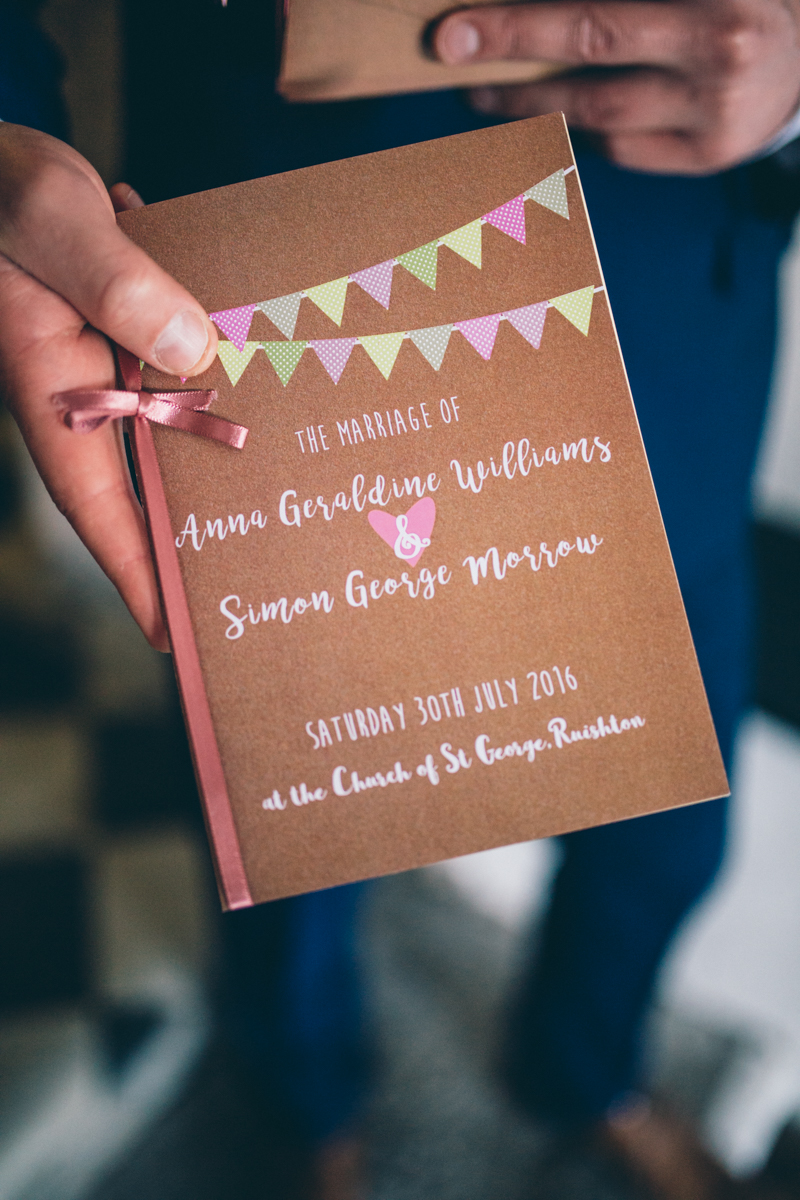 THE MARRIAGE OF
Anna Geraldine Williams
&
Simon George Morrow
SATURDAY 30TH JULY 2016
at the Church of St George, Ruishton